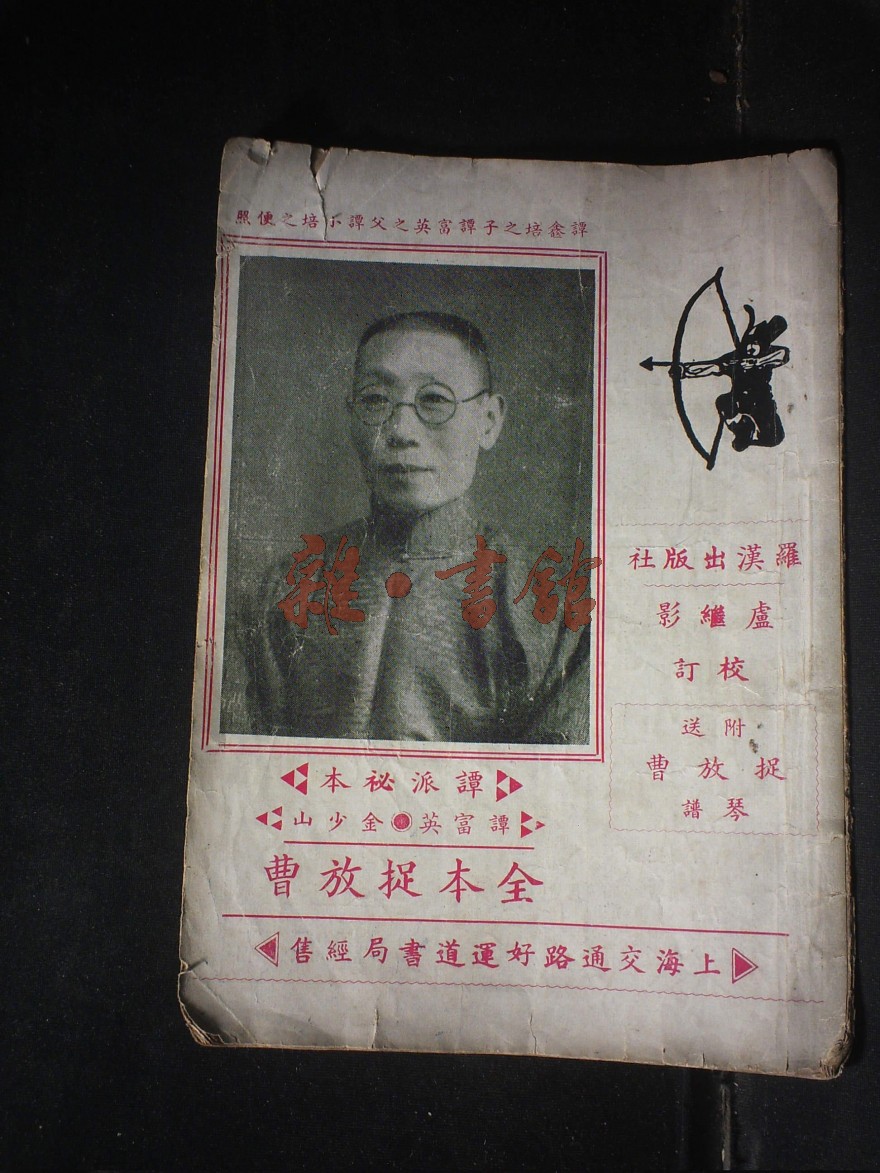 譚鑫培之子譚富英之父譚小培之便照
羅漢出版社
盧繼影
校訂
附送
捉放曹
琴譜
譚派祕本
譚富英●金少山
全本捉放曹
上海交通路好運道書局經售
雜·書館